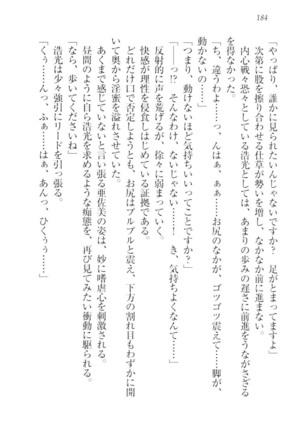 184
「やっぱり、誰かに見られたいんじゃないですか？　足がとまってますよ」
次第に股を擦り合わせる仕草が勢いを増し、なかなか前に進まない。
内心戦々恐々としている浩光としては、あまりの歩みの遅さに前進をうながさざる
を得なかった。
「ち、違うわよ……っ、んはぁ、あぁ……お尻のなかが、ゴツゴツ震えて……脚が、
動かないの……」
「つまり、動けないほど気持ちいいってことですか？」
「――っ!?　そんなわけ、ないじゃない……！　き、気持ちよくなんて……」
反射的に声を荒げるが、徐々に弱まっていく。
快感が理性を侵食しはじめている証拠である。
どれだけ口で否定しようとも、お尻はプルプルと震え、下方の割れ目もわずかに開
いて奥から淫蜜を溢れさせていた。
あくまで感じていないと言い張る亜佐美の姿は、妙に嗜虐心を刺激する。
昼間のように自ら浩光を求めるような痴態を、再び見てみたい衝動に駆られる。
「なら、歩いてくださいね」
浩光は少々強引にリードを引っ張る。
「くぅ……んっ、ふぁ……はぁ、あんっ、ひくぅぅ……！」